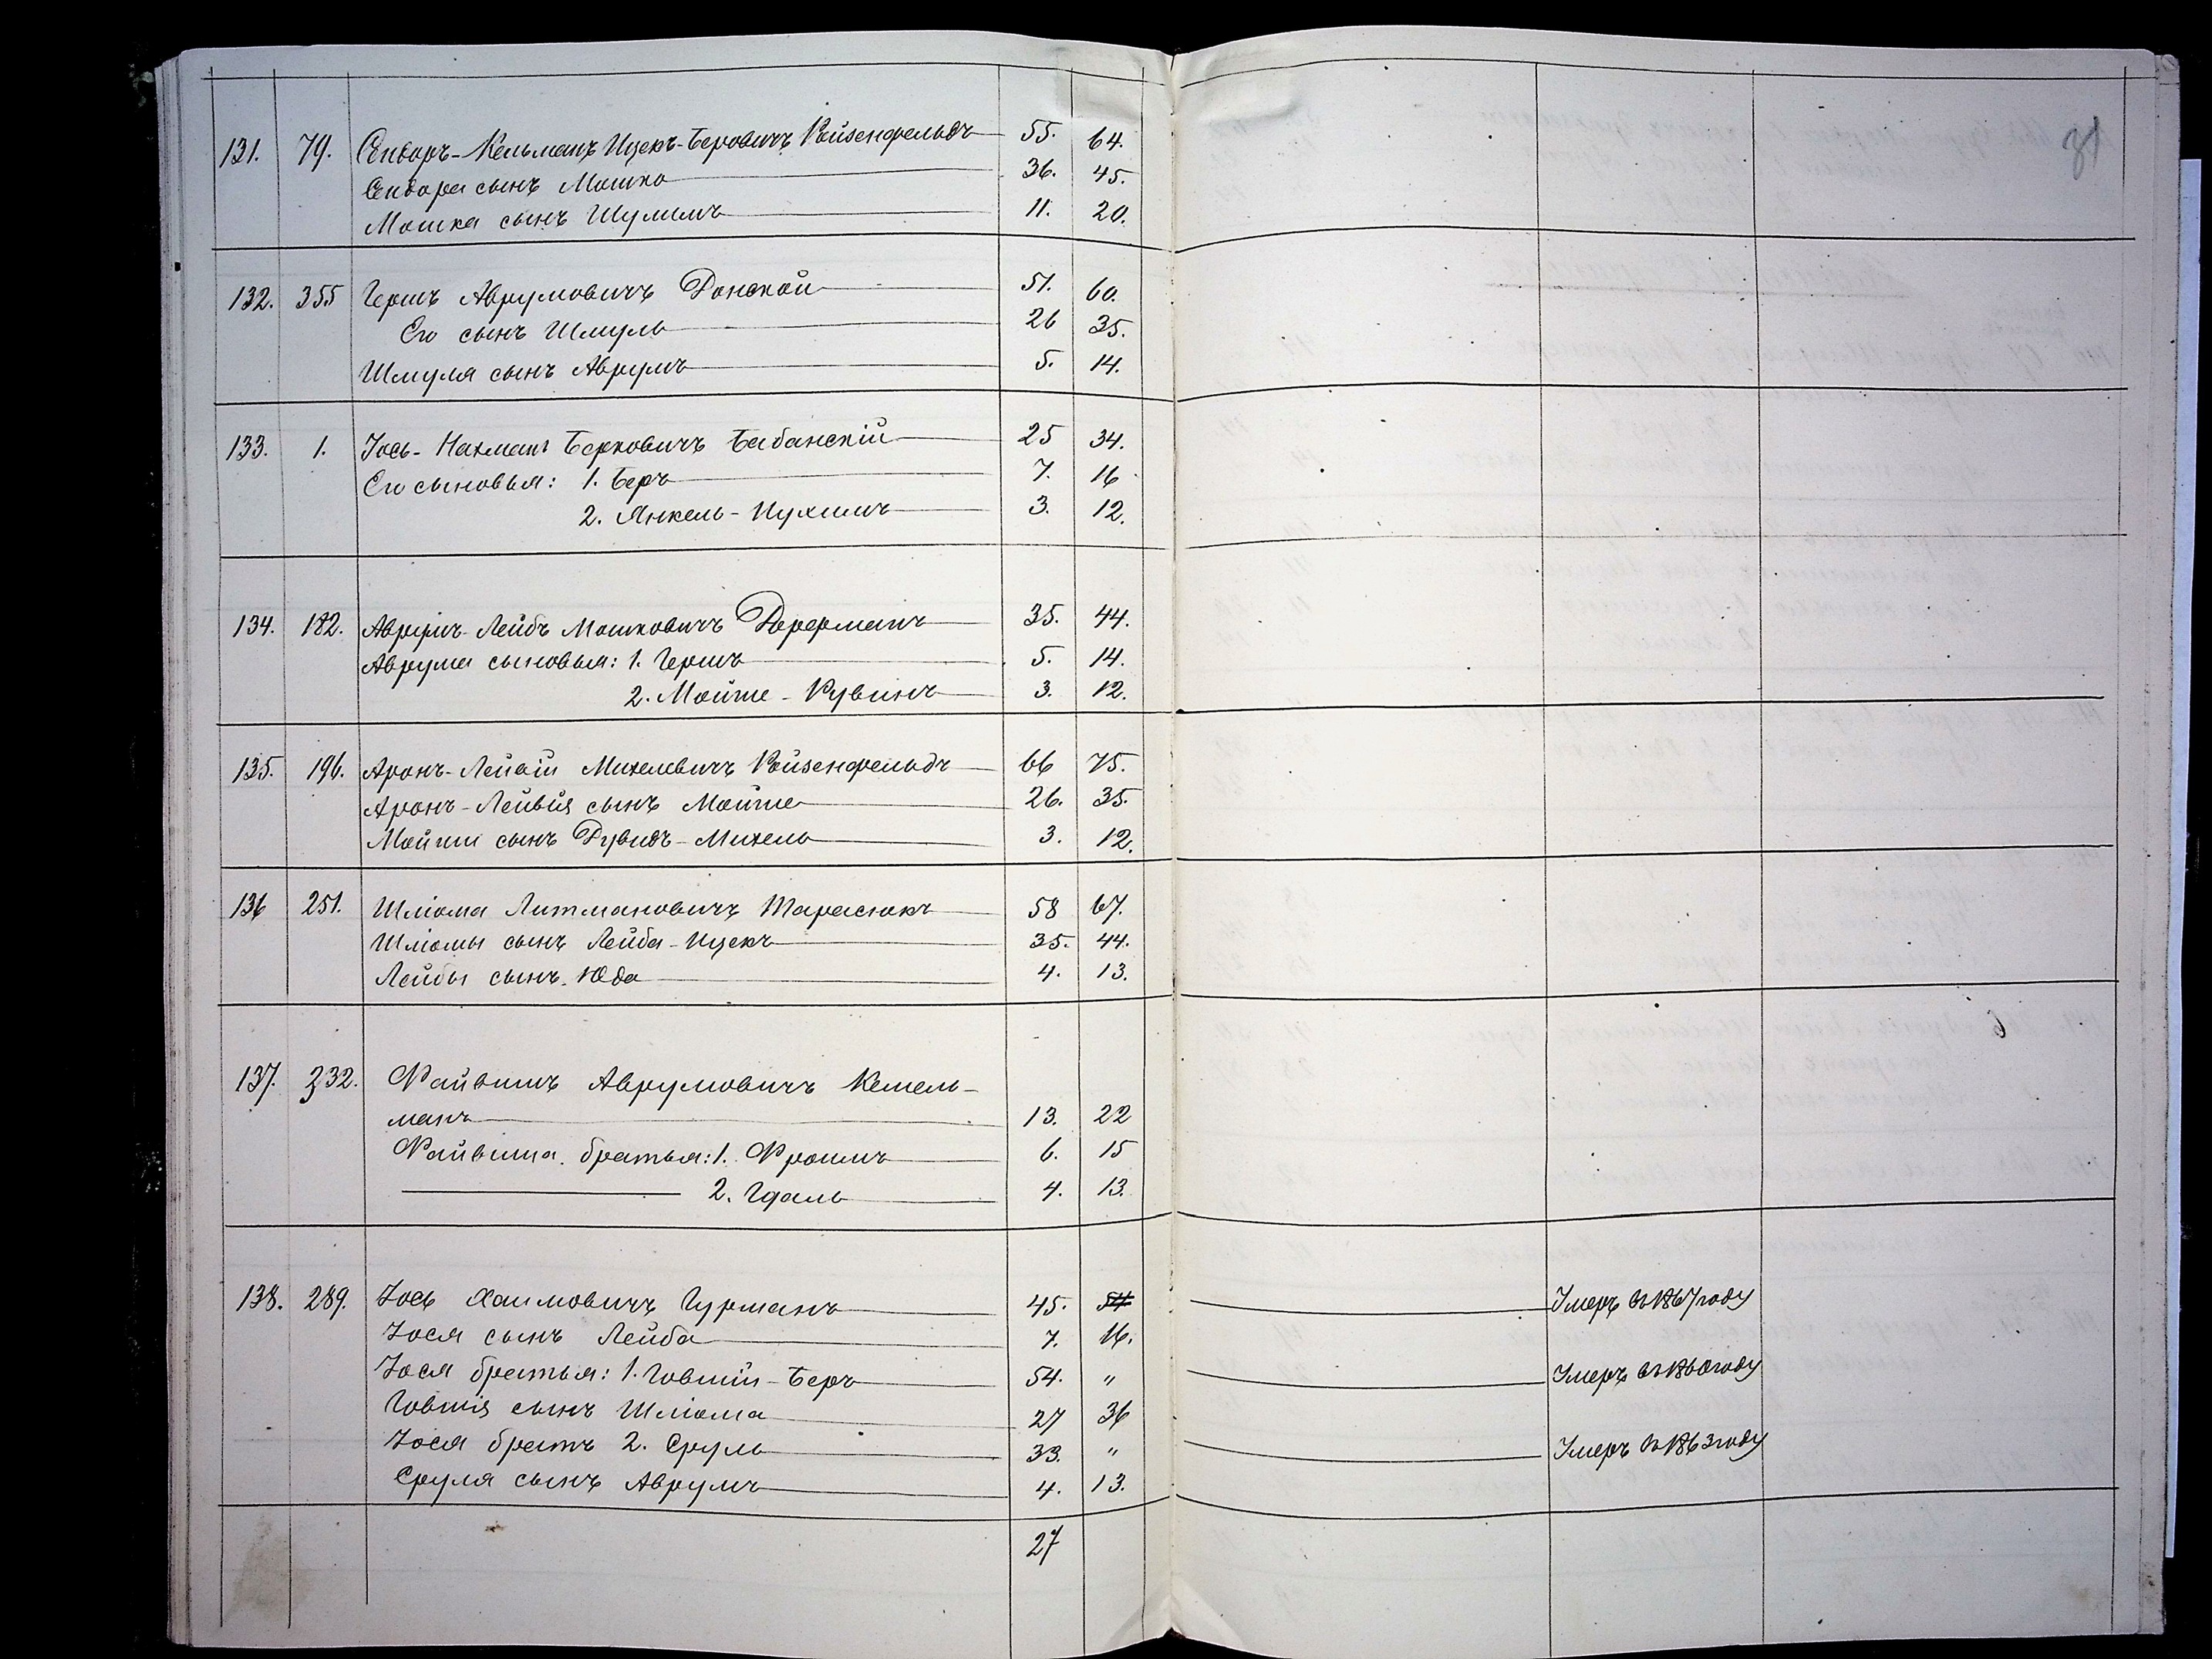 31
131. 79. Сендоръ-Кельманъ Ицекъ-Беровичъ Войзенфельдъ 55. 64.
Сендора сынъ Мошко 36. 45.
Мошка сынъ Шулимъ 11. 20.
132. 355 Гершъ Аврумовичъ Донской 51. 60.
Его сынъ Шмуль 26 35.
Шмуля сынъ Аврумъ 5. 14.
133. 1. Іось-Нахманъ Берковичъ Бабанскій 25 34.
Его сыновья: 1. Беръ 7. 16
2. Янкель-Нухимъ 3. 12.
134. 182. Аврумъ-Лейбъ Мошковичъ Дорфманъ 35. 44.
Аврума сыновья: 1. Гершъ 5. 14.
2. Мойше-Рувинъ 3. 12.
135. 196. Аронъ-Лейвій Михелевичъ Войзенфельдъ 66 75.
Аронъ-Лейвія сынъ Мойше 26. 35.
Мойши сынъ Дувидъ-Михель 3. 12.
136 251. Шліома Литмановичъ Тарасюкъ 58 67.
Шліомы сынъ Лейба-Ицекъ 35. 44.
Лейбы сынъ Юда 4. 13.
137. 232. Файвишъ Аврумовичъ Кешель-
манъ 13. 22
Файвиша братья: 1. Фроимъ 6. 15
2. Гдаль 4. 13.
138. 289. Іось Хаимовичъ Гурманъ 45. 54 Умеръ въ 1867 году
Іося сынъ Лейба 7. 16.
Іося братья: 1. Говшій-Беръ 54. " Умеръ въ 1860 году
Говшія сынъ Шліома 27 36
Іося братъ 2. Сруль 33. " Умеръ въ 1863 году
Сруля сынъ Аврумъ 4. 13.
27